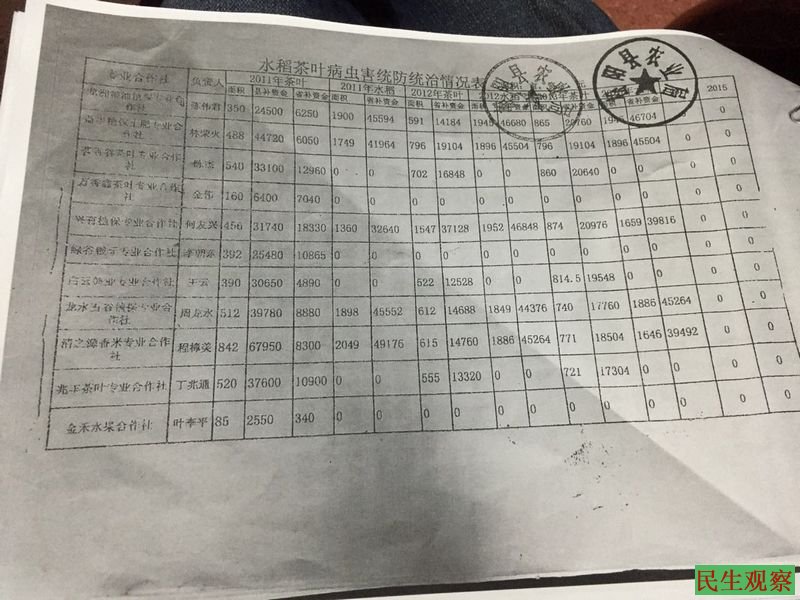 水稻茶叶病虫害统防统治情况表
专业合作社 负责人 2011年茶叶 2011年水稻 2012年茶叶 2012水稻 年茶叶 2015
面积 县补资金 省补资金 面积 省补资金 面积 省补资金 面积 省补资金 面积 省补资金
350 24500 6250 1900 45594 591 14184 1945 46680 865 20760 46704
488 44720 6050 1749 41964 796 19104 1896 45504 796 19104 1896 45504 0 0
茶叶专业合作社 540 33100 12960 0 0 702 16848 0 0 860 20640 0 0 0 0
茶叶专业合作社 160 6400 7040 0 0 0 0 0 0 0 0 0 0 0 0
植保专业合作社 何友兴 456 31740 18330 1360 32640 1547 37128 1952 46848 874 20976 1659 39816 0 0
专业合作社 392 25480 10865 0 0 0 0 0 0 0 0 0 0 0 0
专业合作社 王云 390 30650 4890 0 0 522 12528 0 0 814.5 19548 0 0 0 0
专业合作社 周龙水 512 39780 8880 1898 45552 612 14688 1849 44376 740 17760 1886 45264 0 0
清之源香米专业合作社 842 67950 8300 2049 49176 615 14760 1886 45264 771 18504 1646 39492 0 0
兆丰茶叶专业合作社 丁兆通 520 37600 10900 0 0 555 13320 0 0 721 17304 0 0 0 0
金禾水果合作社 叶李平 85 2550 340 0 0 0 0 0 0 0 0 0 0 0 0
县农业局
民生观察